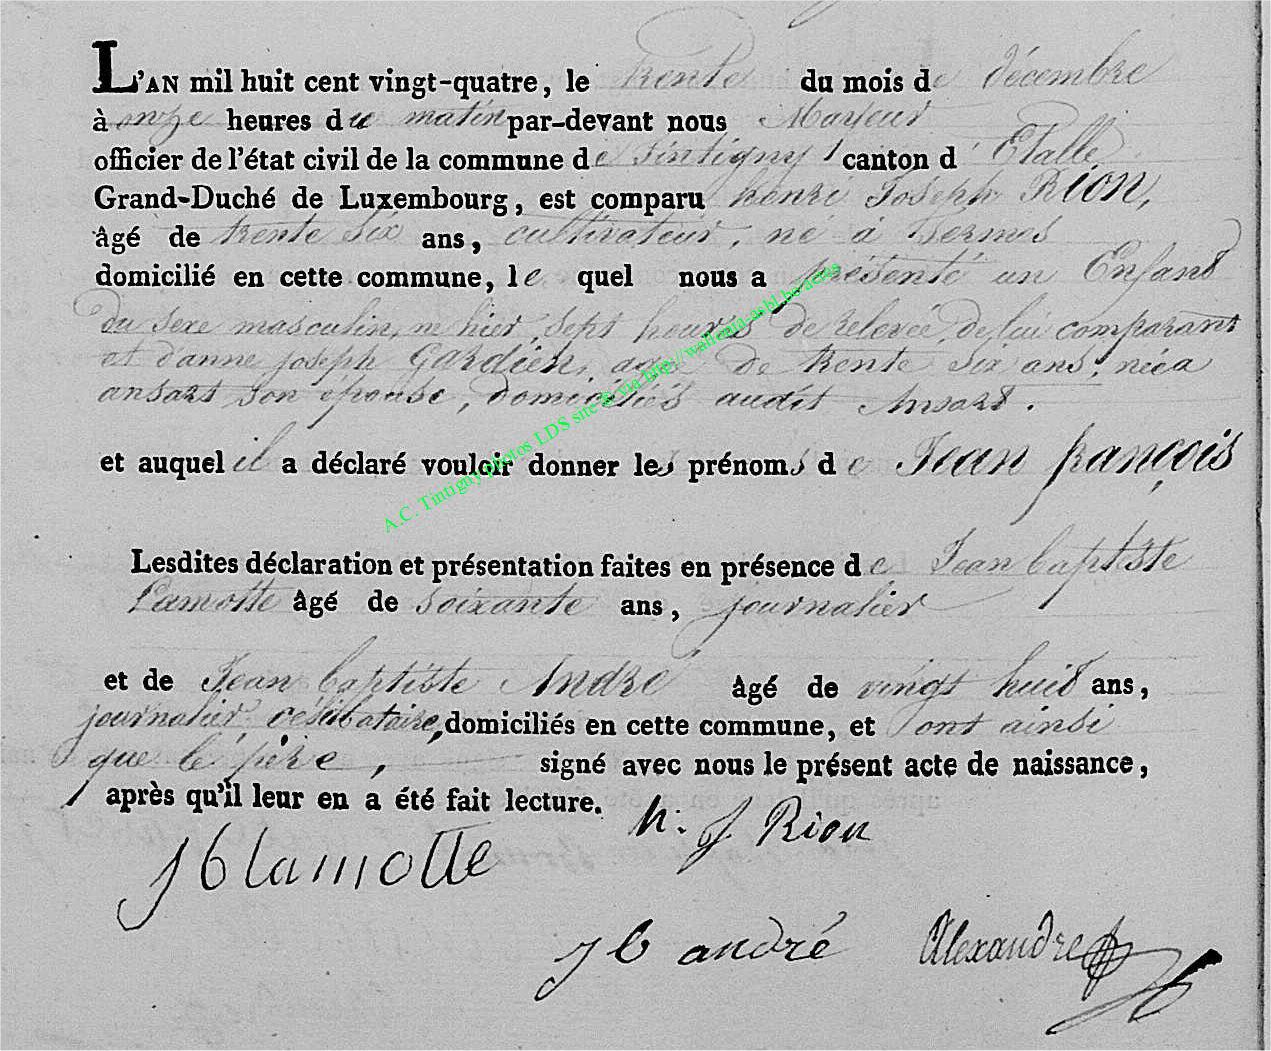 L'AN mil huit cent vingt-quatre, le trente du mois de décembre
à onze heures du matin par-devant nous Mayeur
officier de l'état civil de la commune de tintigny canton d' Etalle
Grand-Duché de Luxembourg, est comparu henri Joseph Rion,
âgé de trente six ans, cultivateur, né à
domicilié en cette commune, le quel nous a présenté un Enfant
du sexe masculin, né hier sept heures de relevée, de lui comparant
et d'anne joseph Gardien, agée de trente six ans, née a
ansart son épouse, domiciliés audit Ansart.
et auquel il a déclaré vouloir donner les prénoms de Jean françois
Lesdites déclaration et présentation faites en présence de Jean baptiste
Lamotte âgé de soixante ans, journalier
et de Jean baptiste André âgé de vingt huit ans,
journalier, célibataire, domiciliés en cette commune, et ont ainsi
que le père, signé avec nous le présent acte de naissance,
après qu'il leur en a été fait lecture.
h. J Rion
J b lamotte
J b andré Alexandre
A.C. Tintigny photos LDS site & via http://wallonia-asbl.be/actes